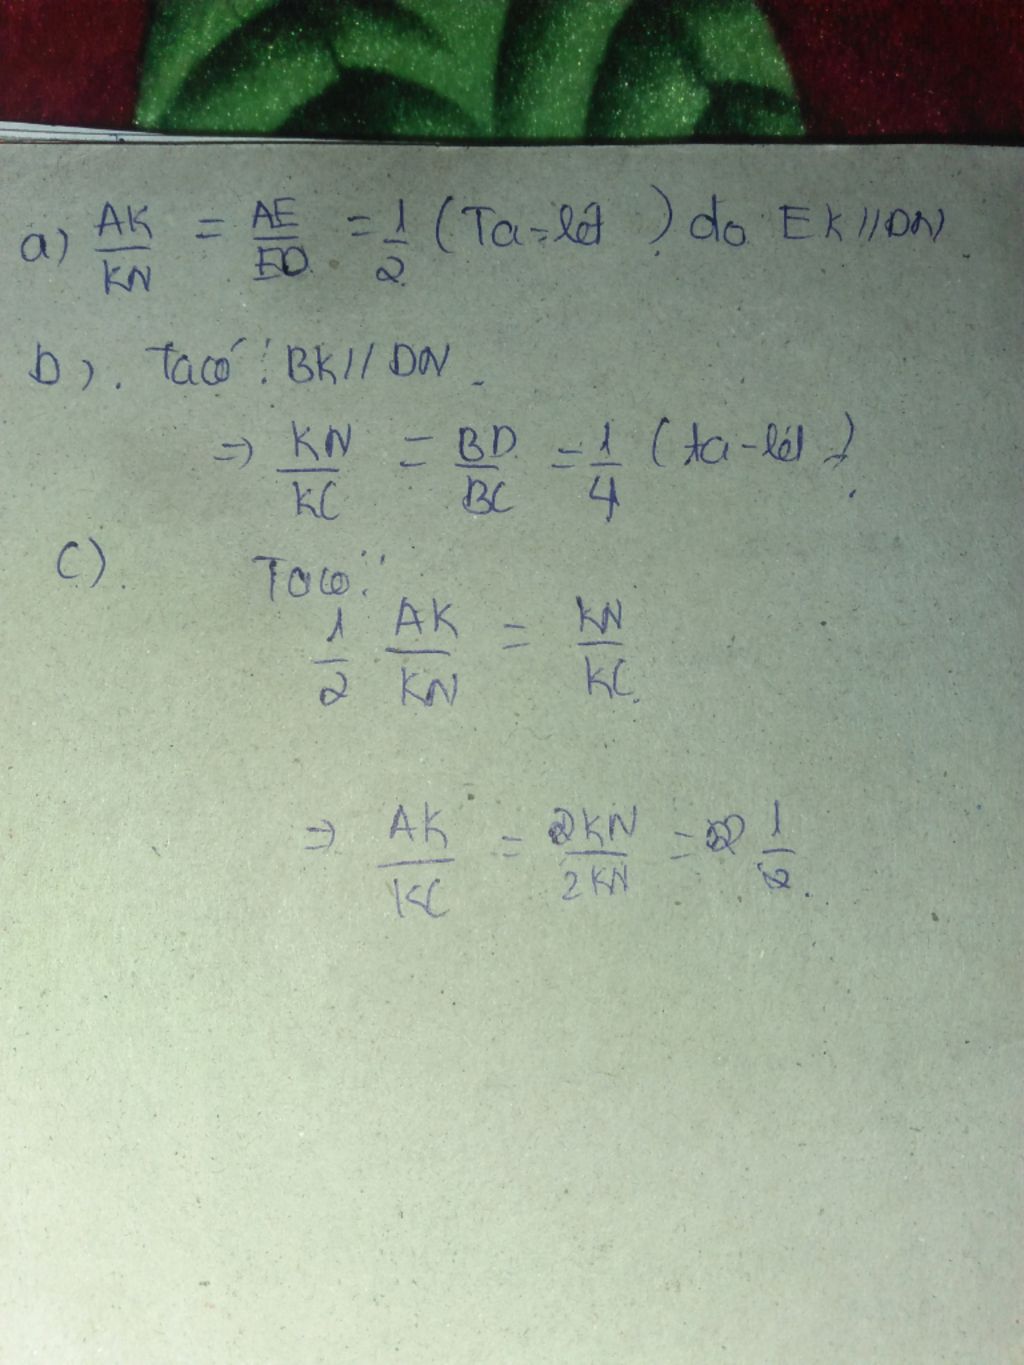 a) AK/KN = AE/ED = 1/2 (Ta-lét) do EK//DN
b). Ta có: BK// DN.
=> KN/KC = BD/BC = 1/4 (ta-lét).
c). Ta có:
1/2 AK/KN = KN/KC.
=> AK/KC = 2KN/2KN = 1/2.